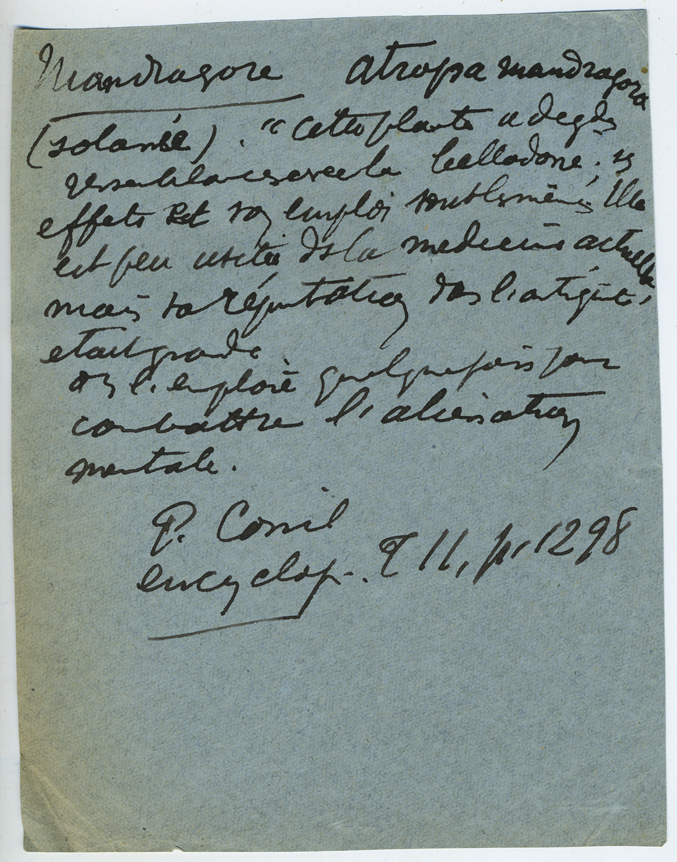 Mandragore atropa mandragora
(solanée). "Cette plante a de gdes
ressemblances avec la belladone; ses
effets et son emploi sont les mêmes. Elle
est peu usitée ds la medecine actuelle,
mais sa réputation dans l'antiquité,
etait grande
on l'emploie quelquefois pour
combattre l'aliénation
mentale.
P. Conil
encyclop. T 11, p. 1298